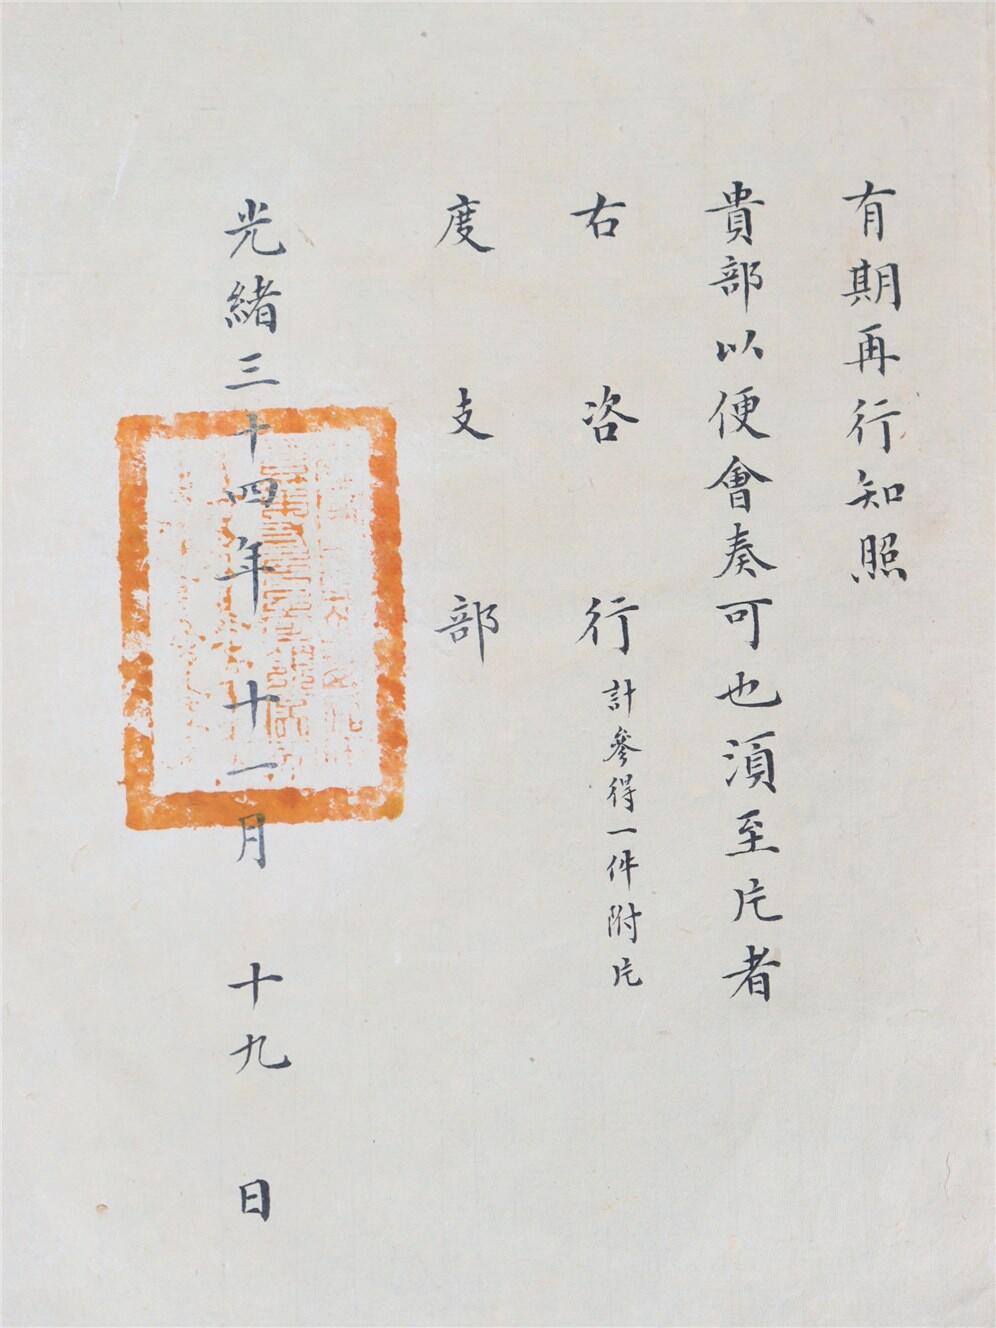 有期再行知照
貴部以便會奏可也須至片者
右咨行計參得一件附片
度支部
光緒三十四年十一月十九日